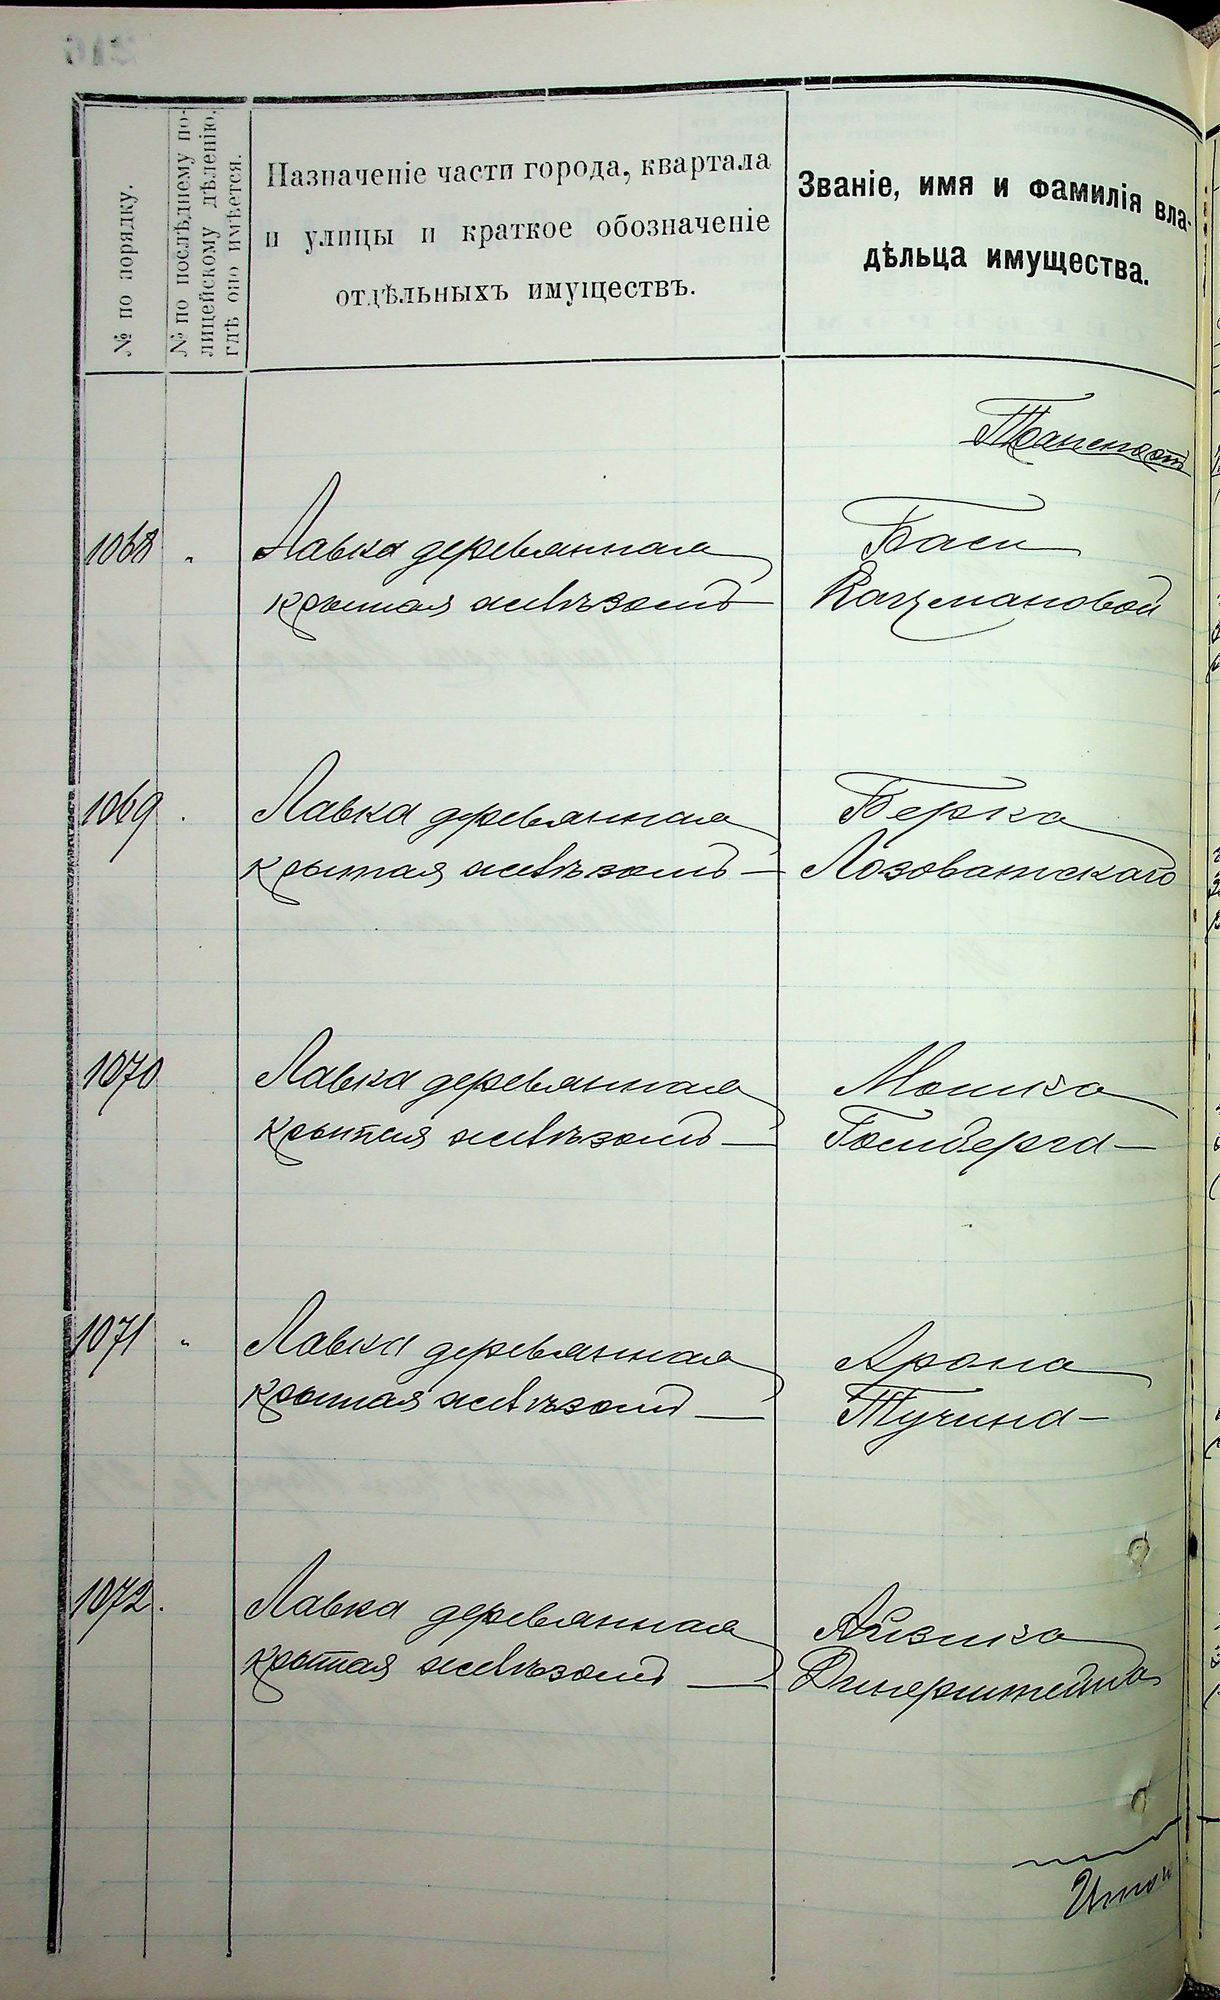 № по порядку.
№ по послѣднему по-
лицейскому дѣленію,
гдѣ оно имѣется.
Назначеніе части города, квартала
и улицы и краткое обозначеніе
отдѣльныхъ имуществъ.
Званіе, имя и фамилія вла-
дѣльца имущества.
Транспорт
1068 "
Лавка деревянная
крытая желѣзомъ
Баси
Кацмановой
1069 .
Лавка деревянная
крытая желѣзомъ —
Берка
Лозоватскаго
1070
Лавка деревянная
крытая желѣзомъ —
Мошка
Гольдберга —
1071 "
Лавка деревянная
крытая желѣзомъ —
Арона
Тучина —
1072.
Лавка деревянная
крытая желѣзомъ —
Айзика
Динерштейна
Итого